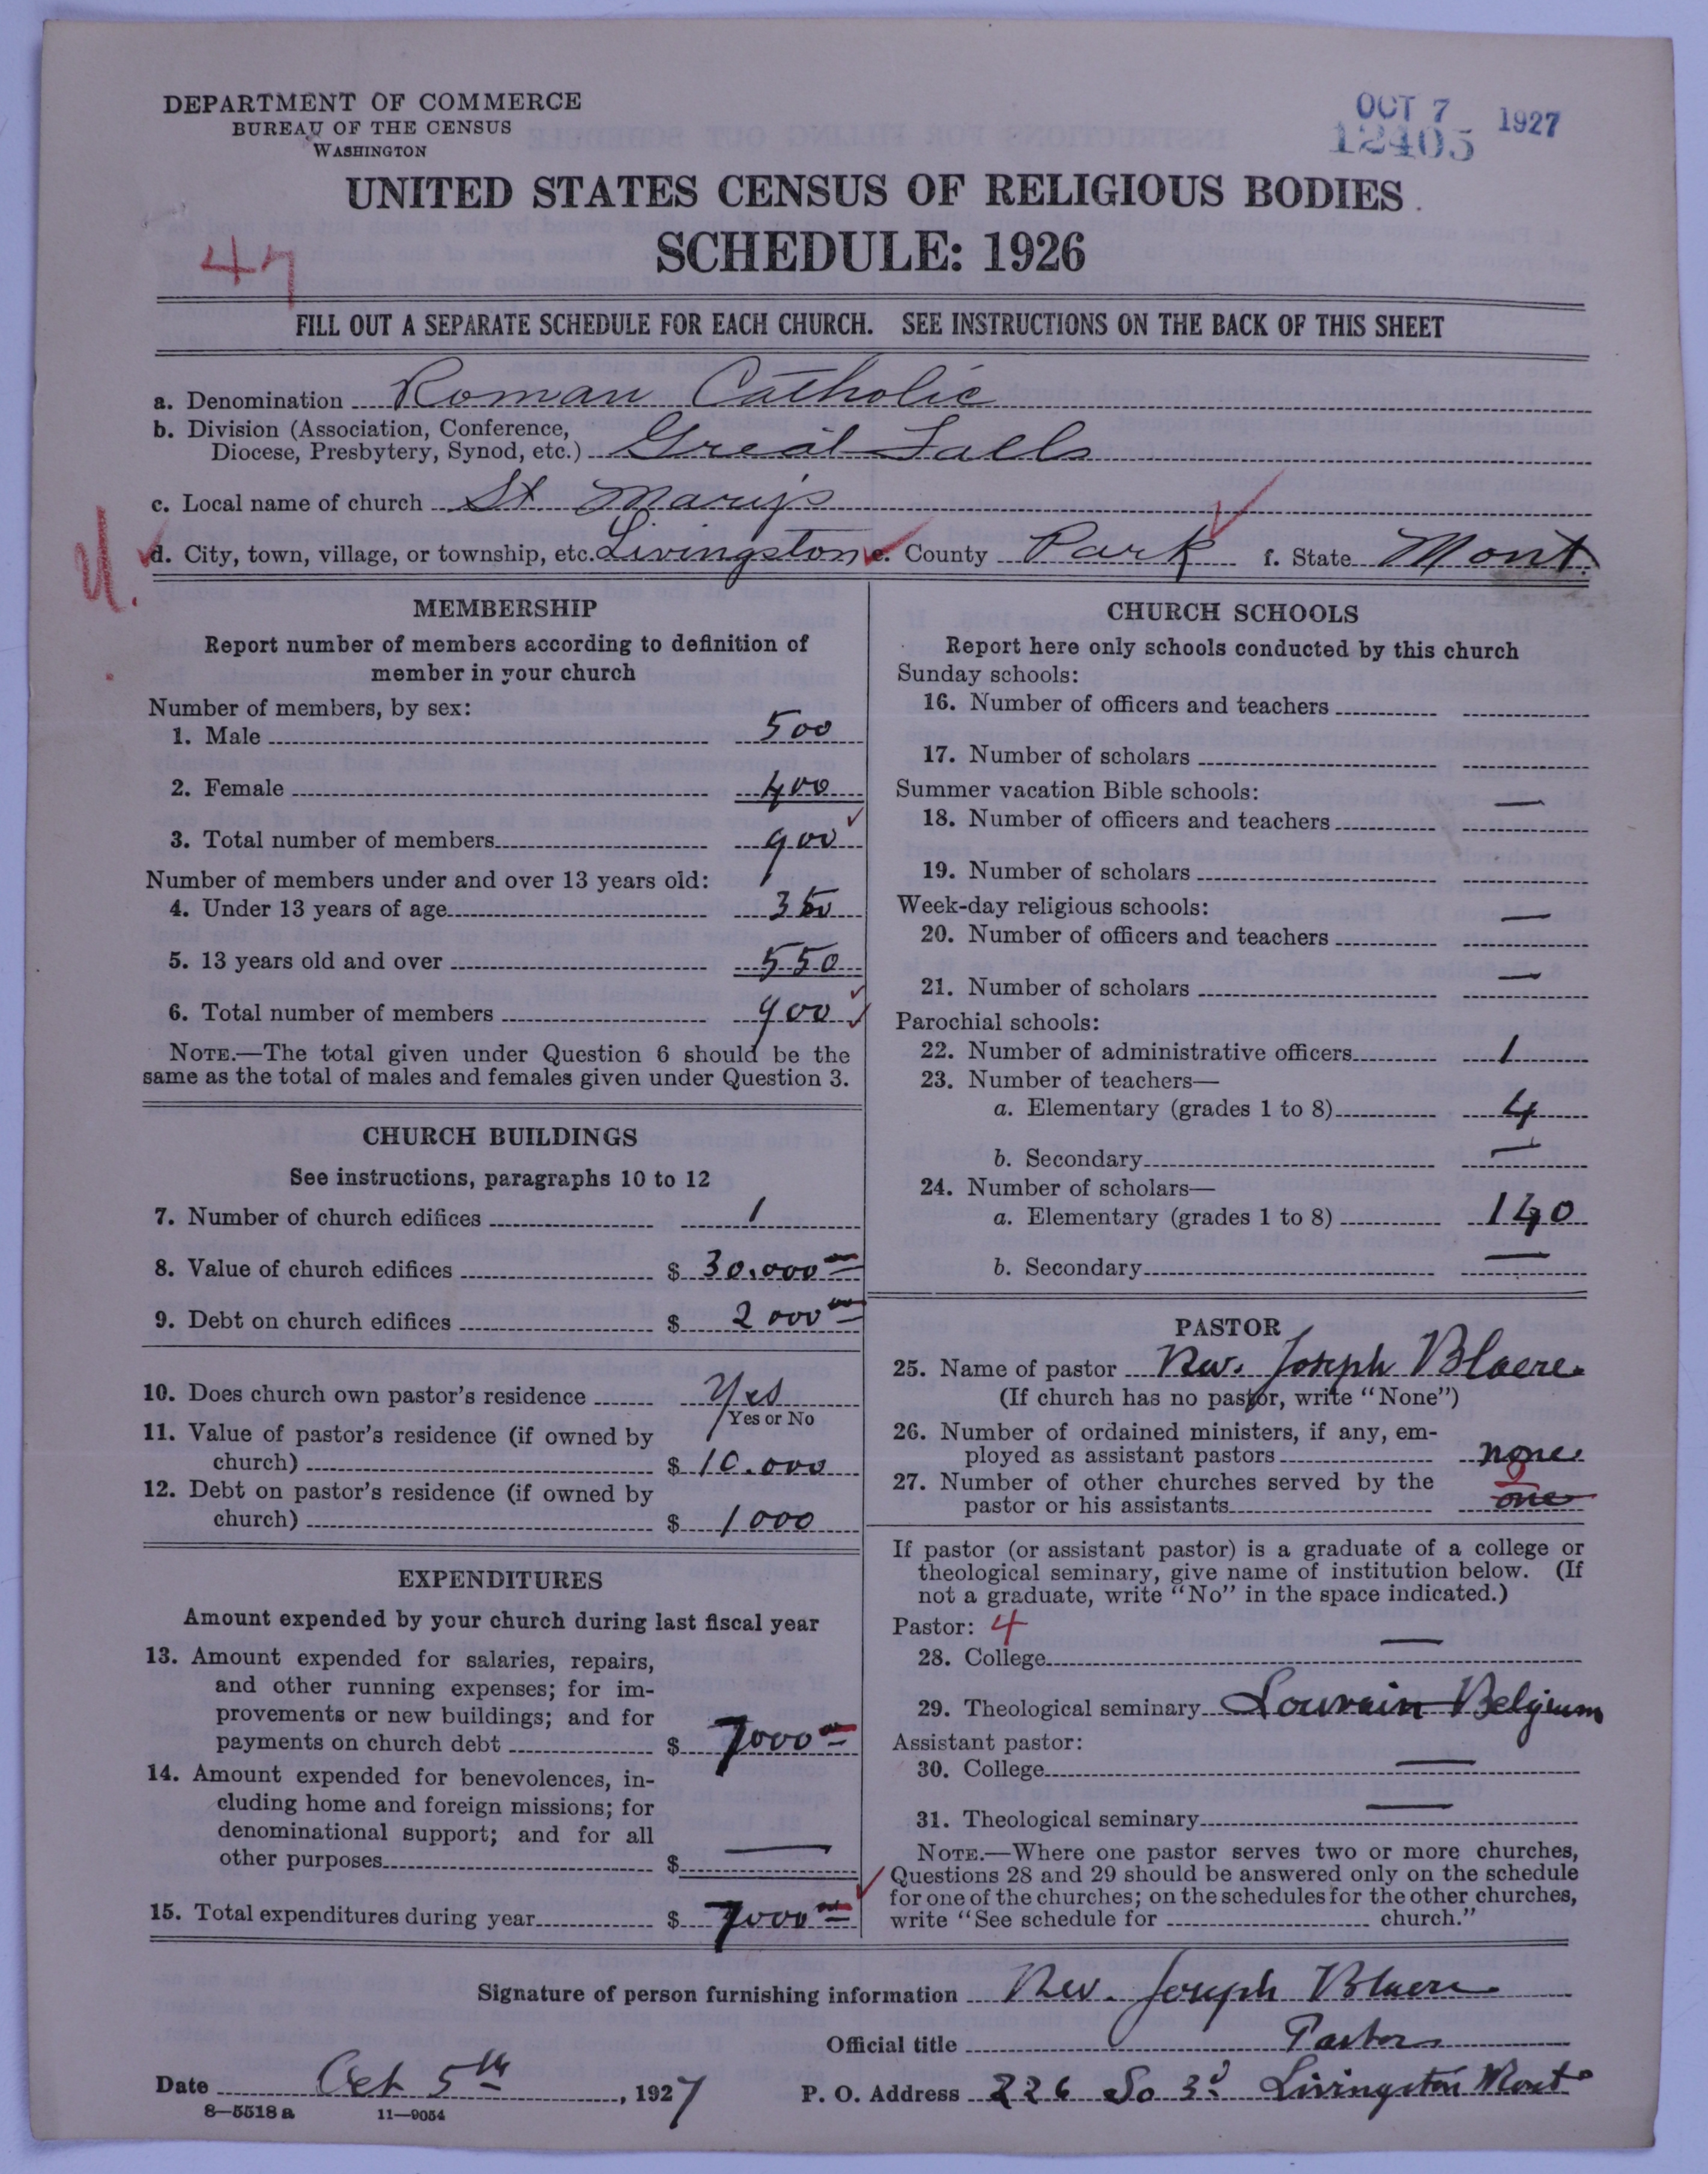 DEPARTMENT OF COMMERCE
BUREAU OF THE CENSUS
WASHINGTON
OCT 7 1927
12405
UNITED STATES CENSUS OF RELIGIOUS BODIES
SCHEDULE: 1926
47
FILL OUT A SEPARATE SCHEDULE FOR EACH CHURCH. SEE INSTRUCTIONS ON THE BACK OF THIS SHEET
a. Denomination Roman Catholic
b. Division (Association, Conference,
Diocese, Presbytery, Synod, etc.) Great Falls
c. Local name of church St Mary's
d. City, town, village, or township, etc. Livingston e. County Park f. State Mont.
MEMBERSHIP
Report number of members according to definition of
member in your church
Number of members, by sex:
1. Male 500
2. Female 400
3. Total number of members 900
Number of members under and over 13 years old:
4. Under 13 years of age 350
5. 13 years old and over 550
6. Total number of members 900
NOTE.—The total given under Question 6 should be the
same as the total of males and females given under Question 3.
CHURCH BUILDINGS
See instructions, paragraphs 10 to 12
7. Number of church edifices 1
8. Value of church edifices $ 30.000 00
9. Debt on church edifices $ 2000 00
10. Does church own pastor's residence Yes
Yes or No
11. Value of pastor's residence (if owned by
church) $ 10.000
12. Debt on pastor's residence (if owned by
church) $ 1000
EXPENDITURES
Amount expended by your church during last fiscal year
13. Amount expended for salaries, repairs,
and other running expenses; for im-
provements or new buildings; and for
payments on church debt $ 7000 00
14. Amount expended for benevolences, in-
cluding home and foreign missions; for
denominational support; and for all
other purposes $ —
15. Total expenditures during year $ 7000 00
CHURCH SCHOOLS
Report here only schools conducted by this church
Sunday schools:
16. Number of officers and teachers
17. Number of scholars
Summer vacation Bible schools: —
18. Number of officers and teachers
19. Number of scholars
Week-day religious schools: —
20. Number of officers and teachers
21. Number of scholars —
Parochial schools:
22. Number of administrative officers 1
23. Number of teachers—
a. Elementary (grades 1 to 8) 4
b. Secondary —
24. Number of scholars—
a. Elementary (grades 1 to 8) 140
b. Secondary —
PASTOR
25. Name of pastor Rev. Joseph Blaere
(If church has no pastor, write "None")
26. Number of ordained ministers, if any, em-
ployed as assistant pastors none
27. Number of other churches served by the
pastor or his assistants one
If pastor (or assistant pastor) is a graduate of a college or
theological seminary, give name of institution below. (If
not a graduate, write "No" in the space indicated.)
Pastor: 4
28. College —
29. Theological seminary Louvain Belgium
Assistant pastor:
30. College —
31. Theological seminary —
NOTE.—Where one pastor serves two or more churches,
Questions 28 and 29 should be answered only on the schedule
for one of the churches; on the schedules for the other churches,
write "See schedule for church."
Signature of person furnishing information Rev. Joseph Blaere
Official title Pastor
Date Oct 5th, 1927 P. O. Address 226 So 3d Livingston Mont
8—5518 a 11—9054